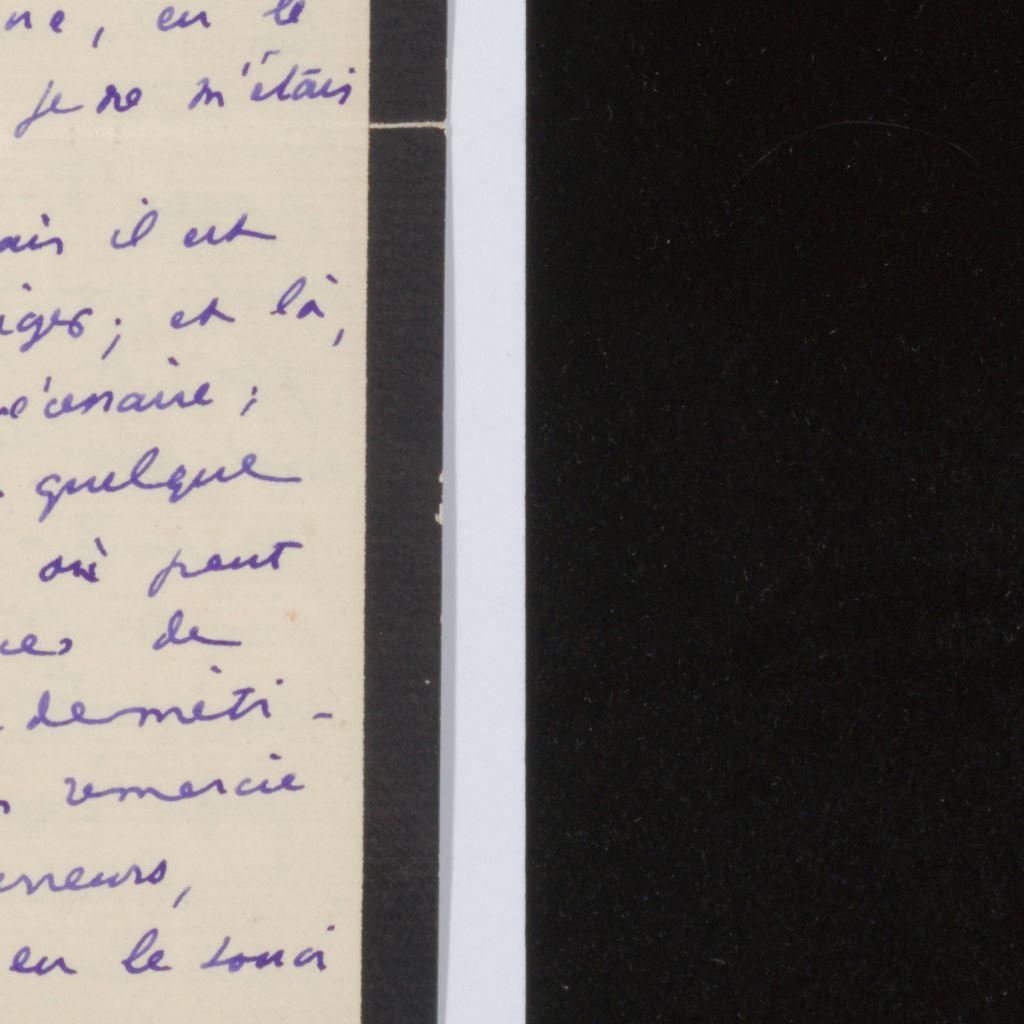 ne, en le
je ne m'étais
ais il est
iger; et là,
écenaire;
quelque
où peut
ces de
deméti-
remercie
erreurs,
en le souci